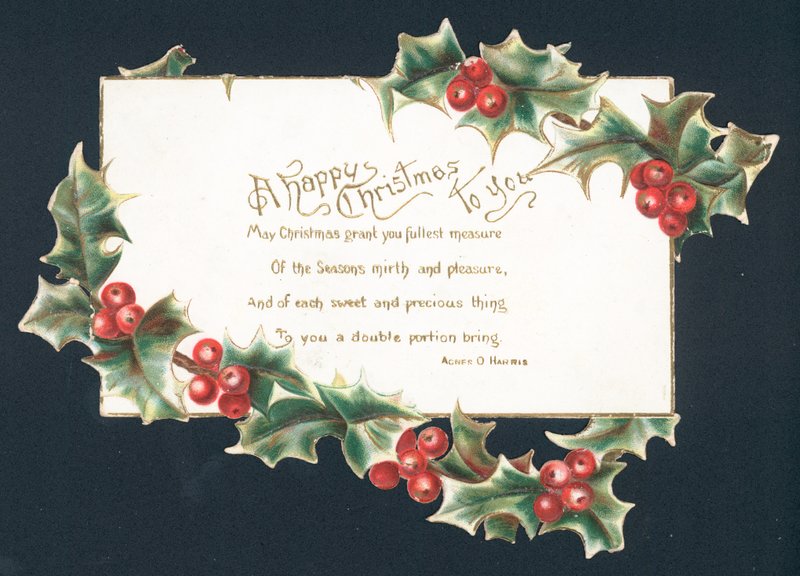 A happy Christmas to you
May Christmas grant you fullest measure
Of the Seasons mirth and pleasure,
And of each sweet and precious thing
To you a double portion bring.
Agnes O Harris